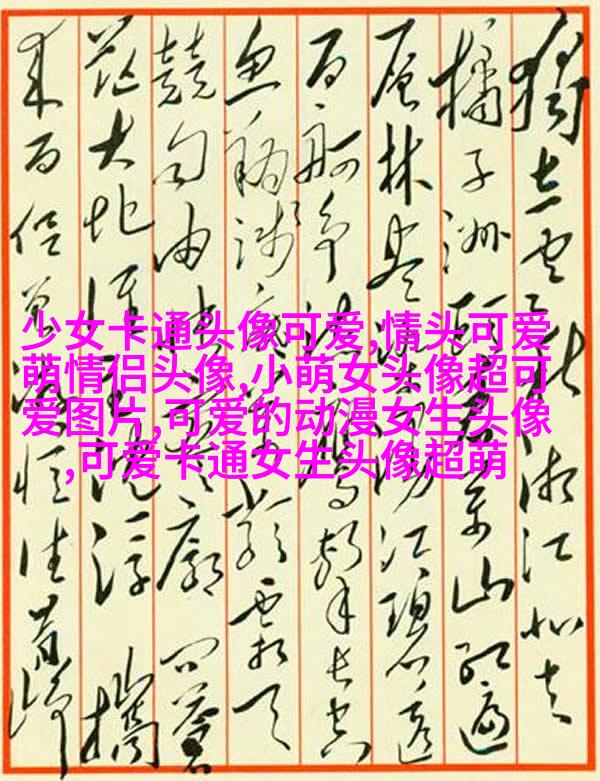 独立寒秋湘江北去
橘子洲头看万山红遍
层林尽染漫江碧透
百舸争流鹰击长空
鱼翔浅底万类霜天
竞自由怅寥廓问苍
茫大地谁主沉浮 携
来百侣曾游忆往昔峥
少女卡通头像可爱,情头可爱
萌情侣头像,小萌女头像超可
爱图片,可爱的动漫女生头像
,可爱卡通女生头像超萌